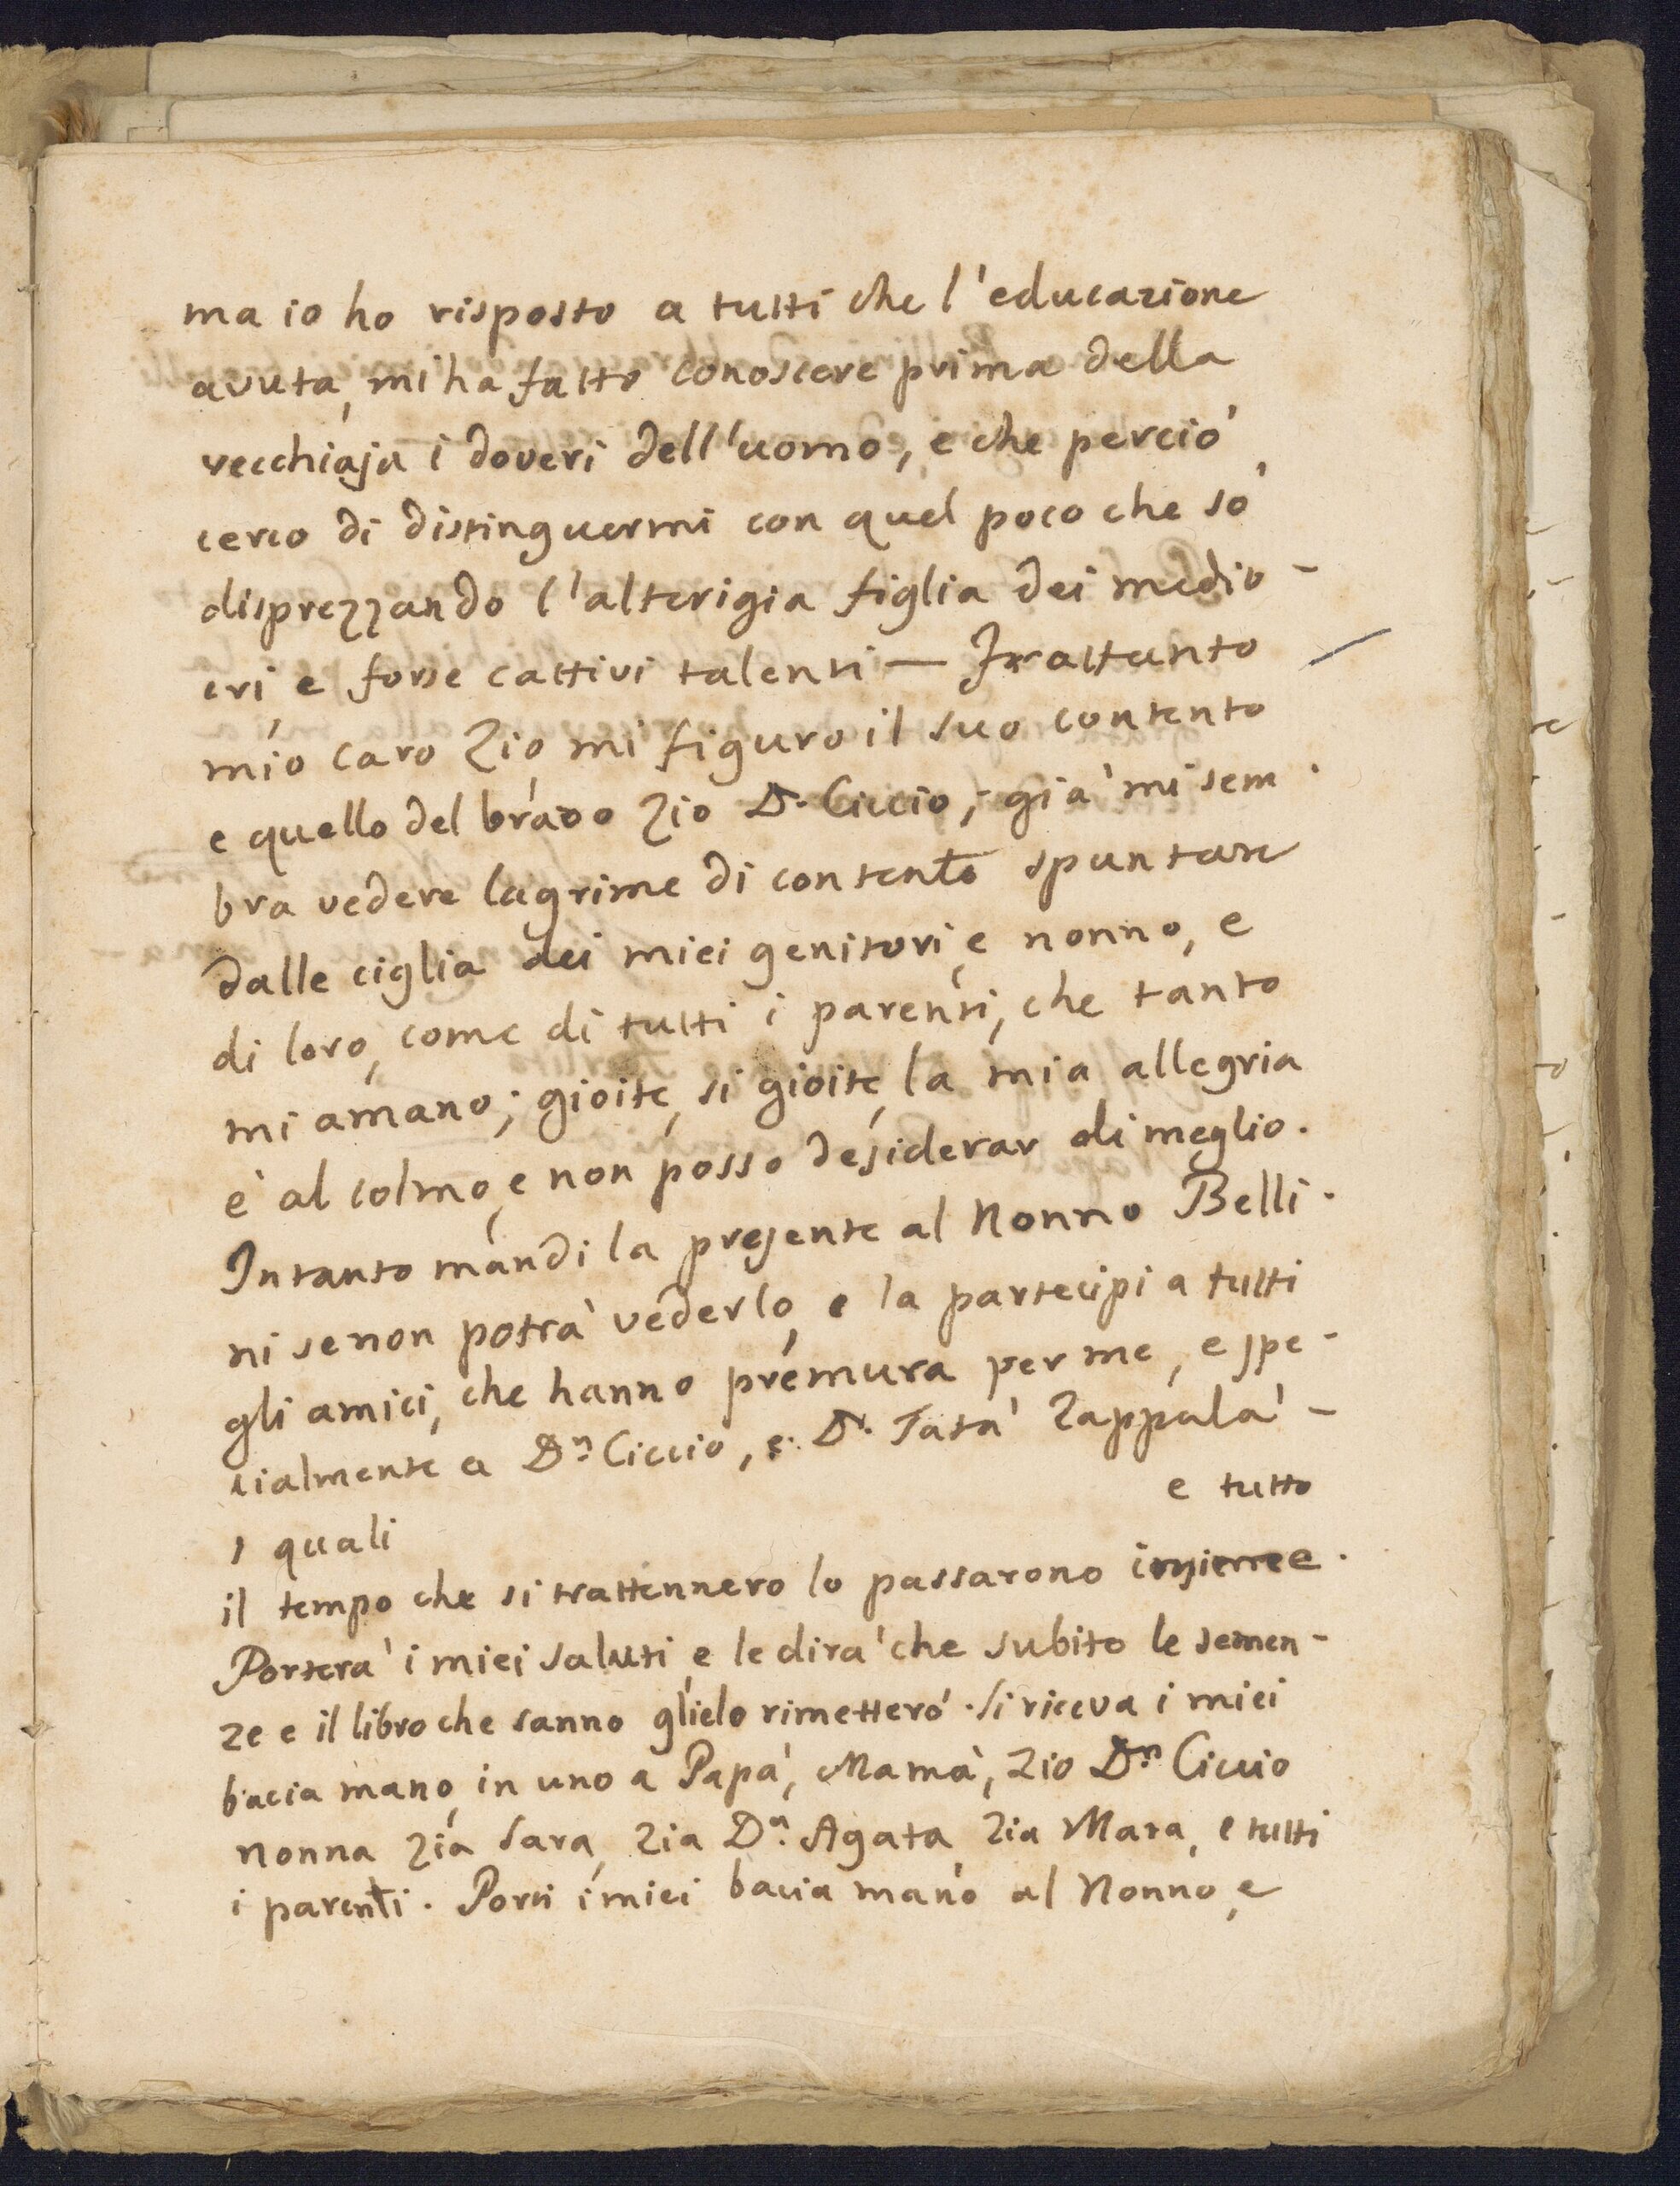 ma io ho risposto a tutti che l'educazione
avuta, mi ha fatto conoscere prima della
vecchiaja i doveri dell'uomo, e che perciò
cerco di distinguermi con quel poco che sò
disprezzando l'alterigia figlia dei medio-
cri, e forse cattivi talenti — Frattanto
mio caro Zio mi figuro il suo contento
e quello del bravo Zio D. Ciccio; già mi sem
bra vedere lagrime di contento spuntare
dalle ciglia dei miei genitori, e nonno, e
di loro, come di tutti i parenti, che tanto
mi amano; gioite, si gioite, la mia allegria
è al colmo, e non posso desiderar di meglio.
Intanto mandi la presente al Nonno Belli-
ni se non potrà vederlo, e la partecipi a tutti
gli amici, che hanno premura per me, e spe-
cialmente a D.n Ciccio, e D. Tatà Zappalà -
e tutto
i quali
il tempo che si trattennero lo passarono insieme.
Porterà i miei saluti, e le dirà che subito le semen-
ze e il libro che sanno glielo rimetterò. Si riceva i miei
bacia mano, in uno a Papà, Mamà, Zio D.n Ciccio
nonna Zia Sara, Zia D.a Agata, Zia Mara, e tutti
i parenti. Porti i miei bacia mano al Nonno, e